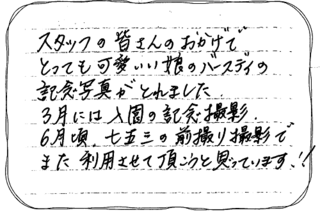 スタッフの皆さんのおかげで
とっても可愛いい娘のバースディの
記念写真がとれました.
3月には入園の記念撮影.
6月頃、七五三の前撮り撮影で
また利用させて頂こうと思っています!!